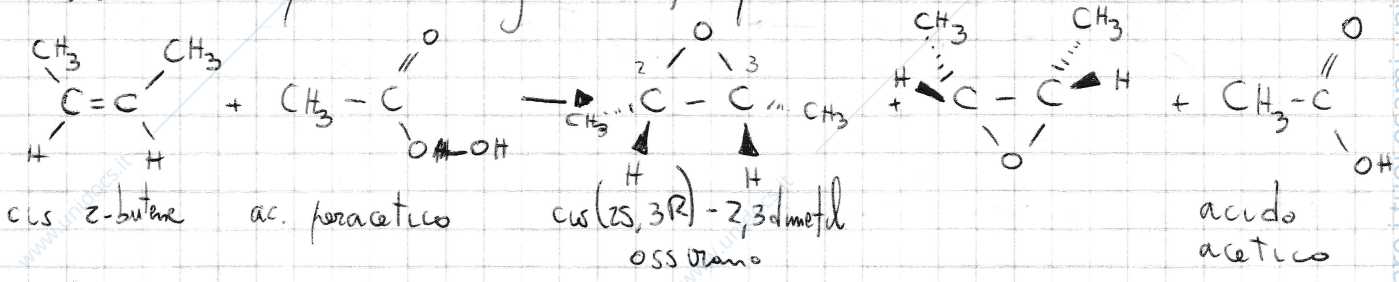 CH3 CH3
C = C
H H
+
CH3 - C
O
O-OH
O
2 3
CH3 C - C CH3
H H
+
CH3 CH3
H C - C H
O
+
CH3 - C
O
OH
cis 2-butene ac. peracetico cis(2S, 3R) - 2,3 dimetil
ossirano
acido
acetico
www.unidocs.it